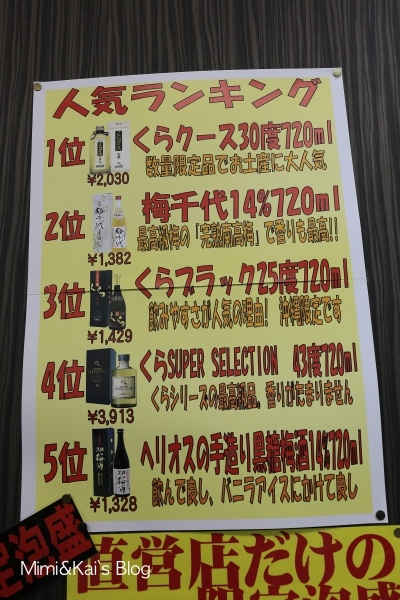 人気ランキング
1位 くらクース30度720ml
数量限定品でお土産に大人気
¥2,030
2位 梅千代14%720ml
最高級梅の「完熟南高梅」で香りも最高!!
¥1,382
3位 くらブラック25度720ml
飲みやすさが人気の理由! 沖縄限定です
¥1,429
4位 くらSUPER SELECTION 43度720ml
くらシリーズの最高級品。香りがたまりません
¥3,913
5位 ヘリオスの手造り黒糖梅酒14%720ml
飲んで良し、バニラアイスにかけて良し
¥1,328
定泡盛
直営店だけの
限定泡盛
Mimi&Kai`s Blog